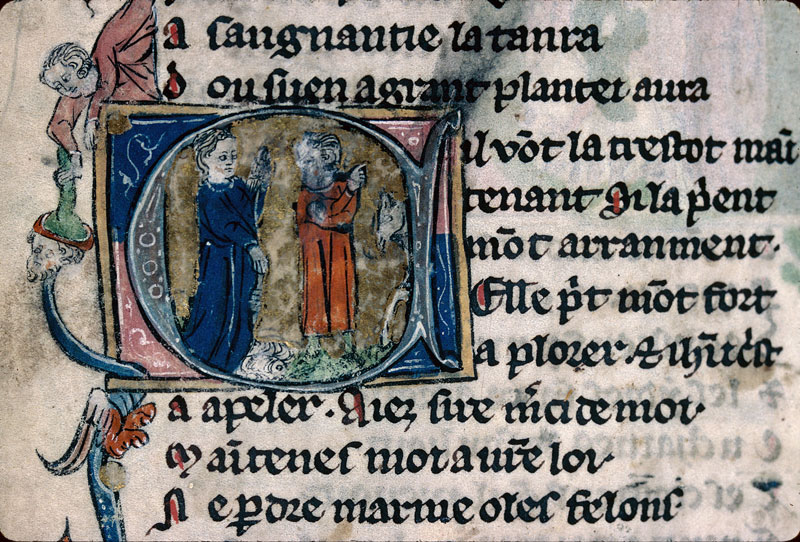 A saugnantie la tanra
D ou suen a grant plantet aura
il vōt la trestot mai
tenant Si la p̄ent
mōt arranment.
Elle p̄t mōt fort
a plorer. & ih̄u c̄st
A apeler. Aiez sire m̄ci de moi.
M aītenes moi a ur̄e loi.
N e p̄dre marme o les felons